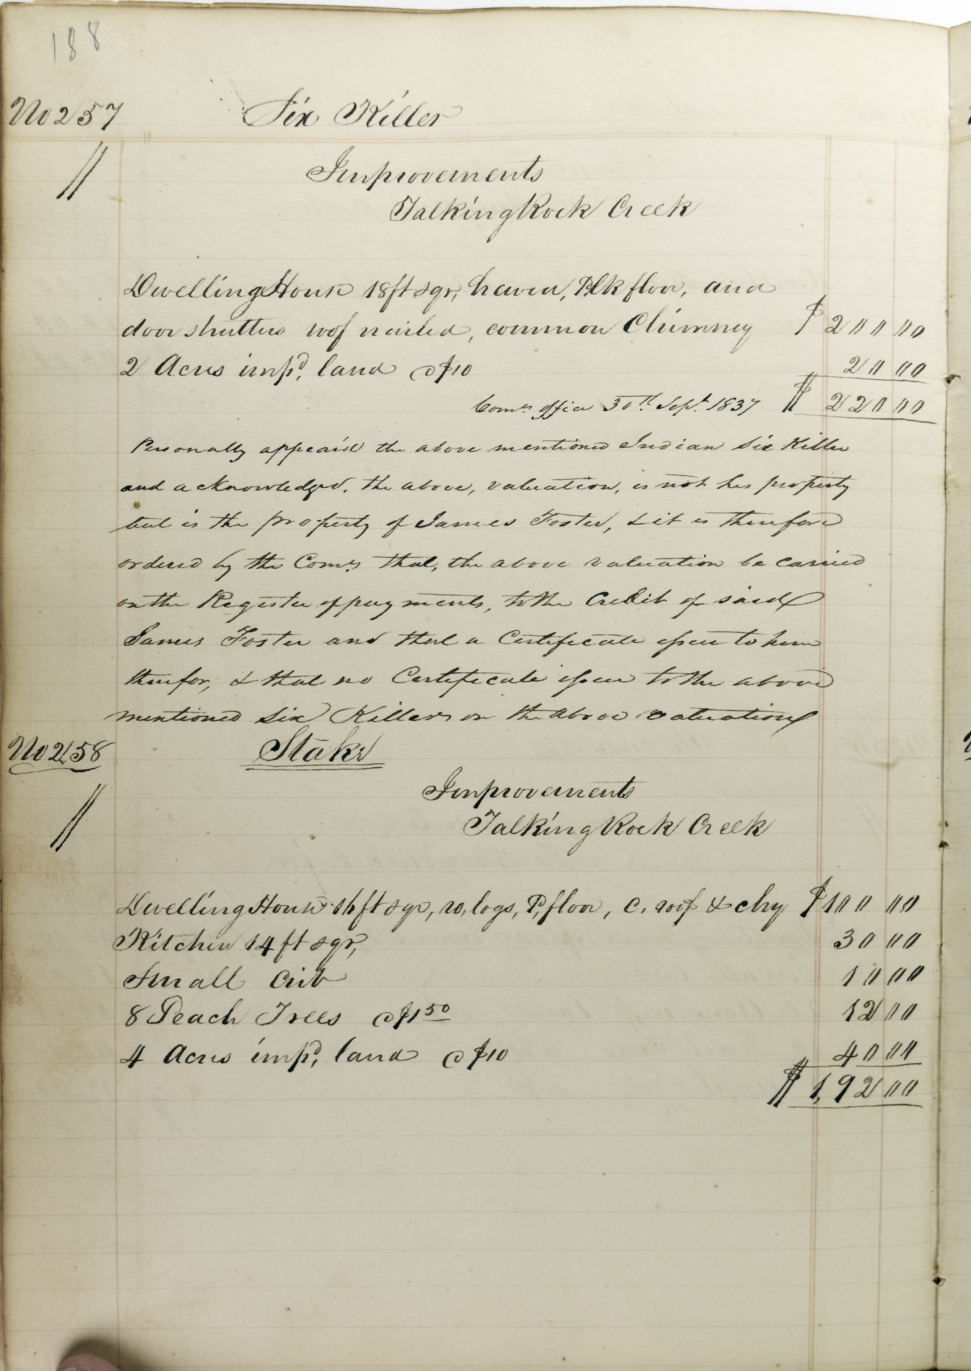 188
No 257 Six Killer
Improvements
Talking Rock Creek
Dwelling House 18 ft sqr, hewed, Plk floor, and
door shutters roof nailed, common Chimney $ 200 00
2 Acres impd, land @ $10 20 00
Comrs office 30th Sept. 1837 $ 220 00
Personally appeard the above mentioned Indian Six Killer
and acknowledged, the above, valuation, is not his property
but is the property of James Foster, & it is therefore
ordered by the Comrs that, the above valuation be carried
on the Register of payments, to the Credit of said
James Foster and that a Certificate issue to him
therefor, & that no Certificate issue to the above
mentioned Six Killer on the above valuation
No 258 Stake
Improvements
Talking Rock Creek
Dwelling House 16 ft sqr, ro, logs, P, floor, C. roof & chy $ 100 00
Kitchin 14 ft sqr, 30 00
Small Crib 10 00
8 Peach Trees @ $1 50 12 00
4 Acres impd, land @ $10 40 00
$ 1,92 00